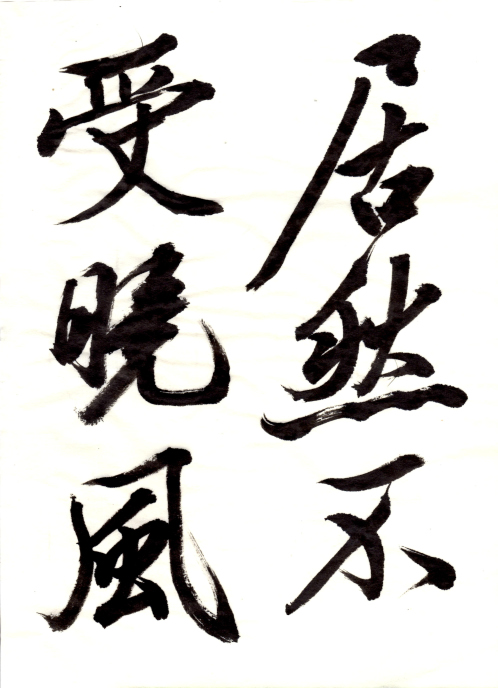 居然不
受晩風